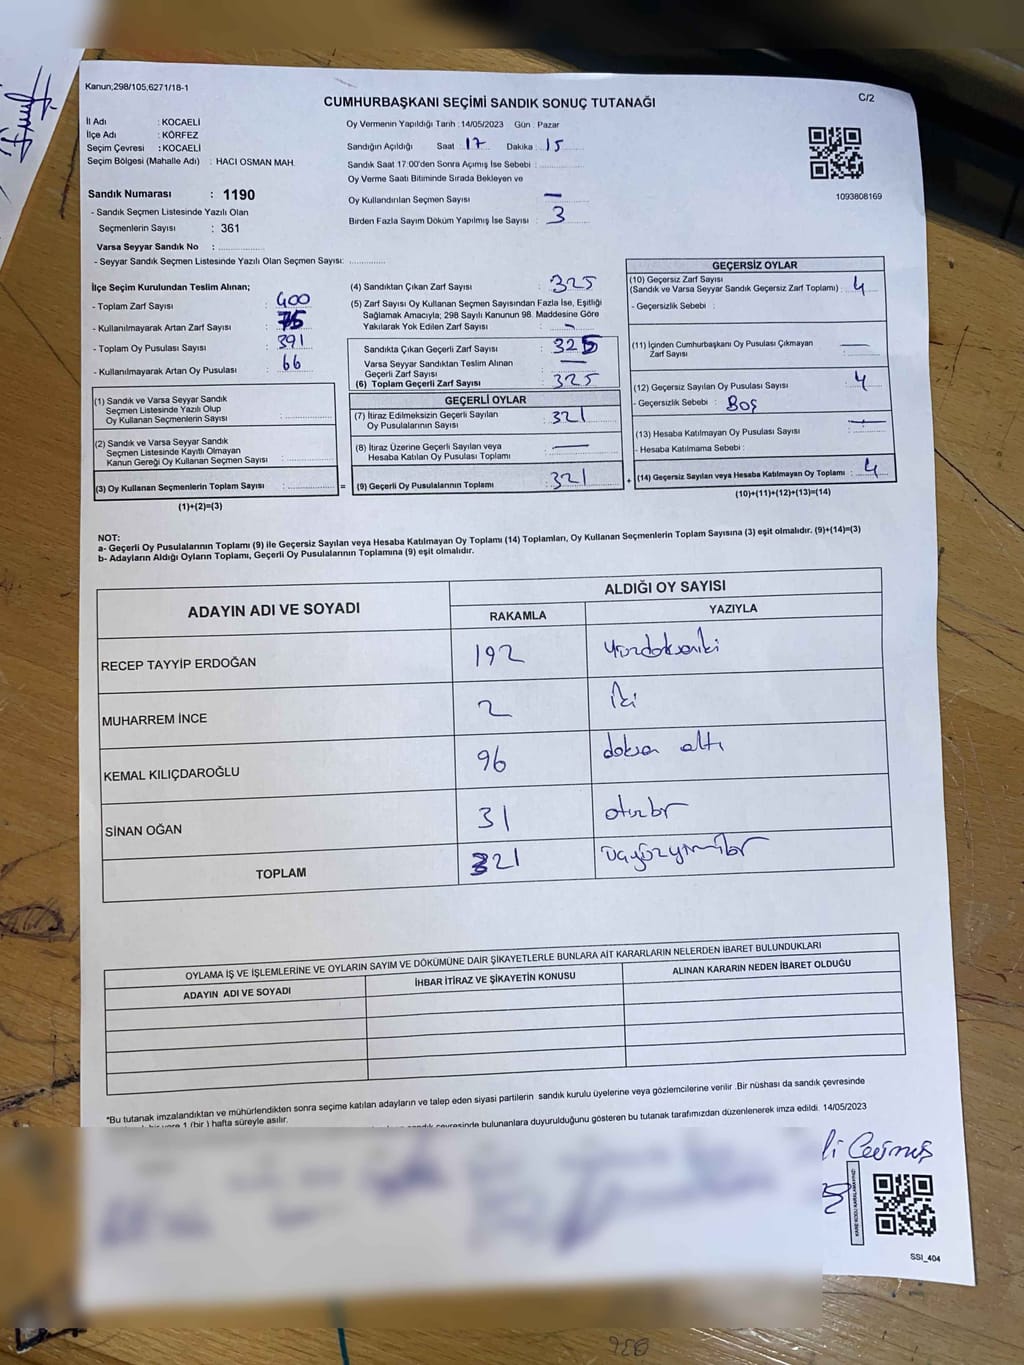 Kanun;298/105,6271/18-1
C/2
CUMHURBAŞKANI SEÇİMİ SANDIK SONUÇ TUTANAĞI
İl Adı : KOCAELİ
İlçe Adı : KÖRFEZ
Seçim Çevresi : KOCAELİ
Seçim Bölgesi (Mahalle Adı) : HACI OSMAN MAH.
Sandık Numarası : 1190
- Sandık Seçmen Listesinde Yazılı Olan
Seçmenlerin Sayısı : 361
Varsa Seyyar Sandık No :
- Seyyar Sandık Seçmen Listesinde Yazılı Olan Seçmen Sayısı:
Oy Vermenin Yapıldığı Tarih : 14/05/2023 Gün : Pazar
Sandığın Açıldığı Saat : 17 Dakika : 15
Sandık Saat 17:00'den Sonra Açımış İse Sebebi :
Oy Verme Saati Bitiminde Sırada Bekleyen ve
Oy Kullandırılan Seçmen Sayısı —
Birden Fazla Sayım Döküm Yapılmış İse Sayısı : 3
1093808169
İlçe Seçim Kurulundan Teslim Alınan;
- Toplam Zarf Sayısı : 400
- Kullanılmayarak Artan Zarf Sayısı : 75
- Toplam Oy Pusulası Sayısı : 391
- Kullanılmayarak Artan Oy Pusulası : 66
(1) Sandık ve Varsa Seyyar Sandık
Seçmen Listesinde Yazılı Olup
Oy Kullanan Seçmenlerin Sayısı :
(2) Sandık ve Varsa Seyyar Sandık
Seçmen Listesinde Kayıtlı Olmayan
Kanun Gereği Oy Kullanan Seçmen Sayısı :
(3) Oy Kullanan Seçmenlerin Toplam Sayısı :
(1)+(2)=(3)
(4) Sandıktan Çıkan Zarf Sayısı : 325
(5) Zarf Sayısı Oy Kullanan Seçmen Sayısından Fazla İse, Eşitliği
Sağlamak Amacıyla; 298 Sayılı Kanunun 98. Maddesine Göre
Yakılarak Yok Edilen Zarf Sayısı : —
Sandıkta Çıkan Geçerli Zarf Sayısı : 325
Varsa Seyyar Sandıktan Teslim Alınan
Geçerli Zarf Sayısı : —
(6) Toplam Geçerli Zarf Sayısı : 325
GEÇERLİ OYLAR
(7) İtiraz Edilmeksizin Geçerli Sayılan
Oy Pusulalarının Sayısı : 321
(8) İtiraz Üzerine Geçerli Sayılan veya
Hesaba Katılan Oy Pusulası Toplamı : —
= (9) Geçerli Oy Pusulalarının Toplamı : 321
GEÇERSİZ OYLAR
(10) Geçersiz Zarf Sayısı
(Sandık ve Varsa Seyyar Sandık Geçersiz Zarf Toplamı) : 4
- Geçersizlik Sebebi :
(11) İçinden Cumhurbaşkanı Oy Pusulası Çıkmayan
Zarf Sayısı : —
(12) Geçersiz Sayılan Oy Pusulası Sayısı : 4
- Geçersizlik Sebebi : Boş
(13) Hesaba Katılmayan Oy Pusulası Sayısı : —
- Hesaba Katılmama Sebebi :
+ (14) Geçersiz Sayılan veya Hesaba Katılmayan Oy Toplamı : 4
(10)+(11)+(12)+(13)=(14)
NOT:
a- Geçerli Oy Pusulalarının Toplamı (9) ile Geçersiz Sayılan veya Hesaba Katılmayan Oy Toplamı (14) Toplamları, Oy Kullanan Seçmenlerin Toplam Sayısına (3) eşit olmalıdır. (9)+(14)=(3)
b- Adayların Aldığı Oyların Toplamı, Geçerli Oy Pusulalarının Toplamına (9) eşit olmalıdır.
ADAYIN ADI VE SOYADI ALDIĞI OY SAYISI
RAKAMLA YAZIYLA
RECEP TAYYİP ERDOĞAN 192 yüzdoksaniki
MUHARREM İNCE 2 İki
KEMAL KILIÇDAROĞLU 96 doksan altı
SİNAN OĞAN 31 otuzbir
TOPLAM 321 üçyüzyirmibir
OYLAMA İŞ VE İŞLEMLERİNE VE OYLARIN SAYIM VE DÖKÜMÜNE DAİR ŞİKAYETLERLE BUNLARA AİT KARARLARIN NELERDEN İBARET BULUNDUKLARI
ADAYIN ADI VE SOYADI İHBAR İTİRAZ VE ŞİKAYETİN KONUSU ALINAN KARARIN NEDEN İBARET OLDUĞU
*Bu tutanak imzalandıktan ve mühürlendikten sonra seçime katılan adayların ve talep eden siyasi partilerin sandık kurulu üyelerine veya gözlemcilerine verilir .Bir nüshası da sandık çevresinde
1 (bir ) hafta süreyle asılır.
bulunanlara duyurulduğunu gösteren bu tutanak tarafımızdan düzenlenerek imza edildi. 14/05/2023
SSI_404